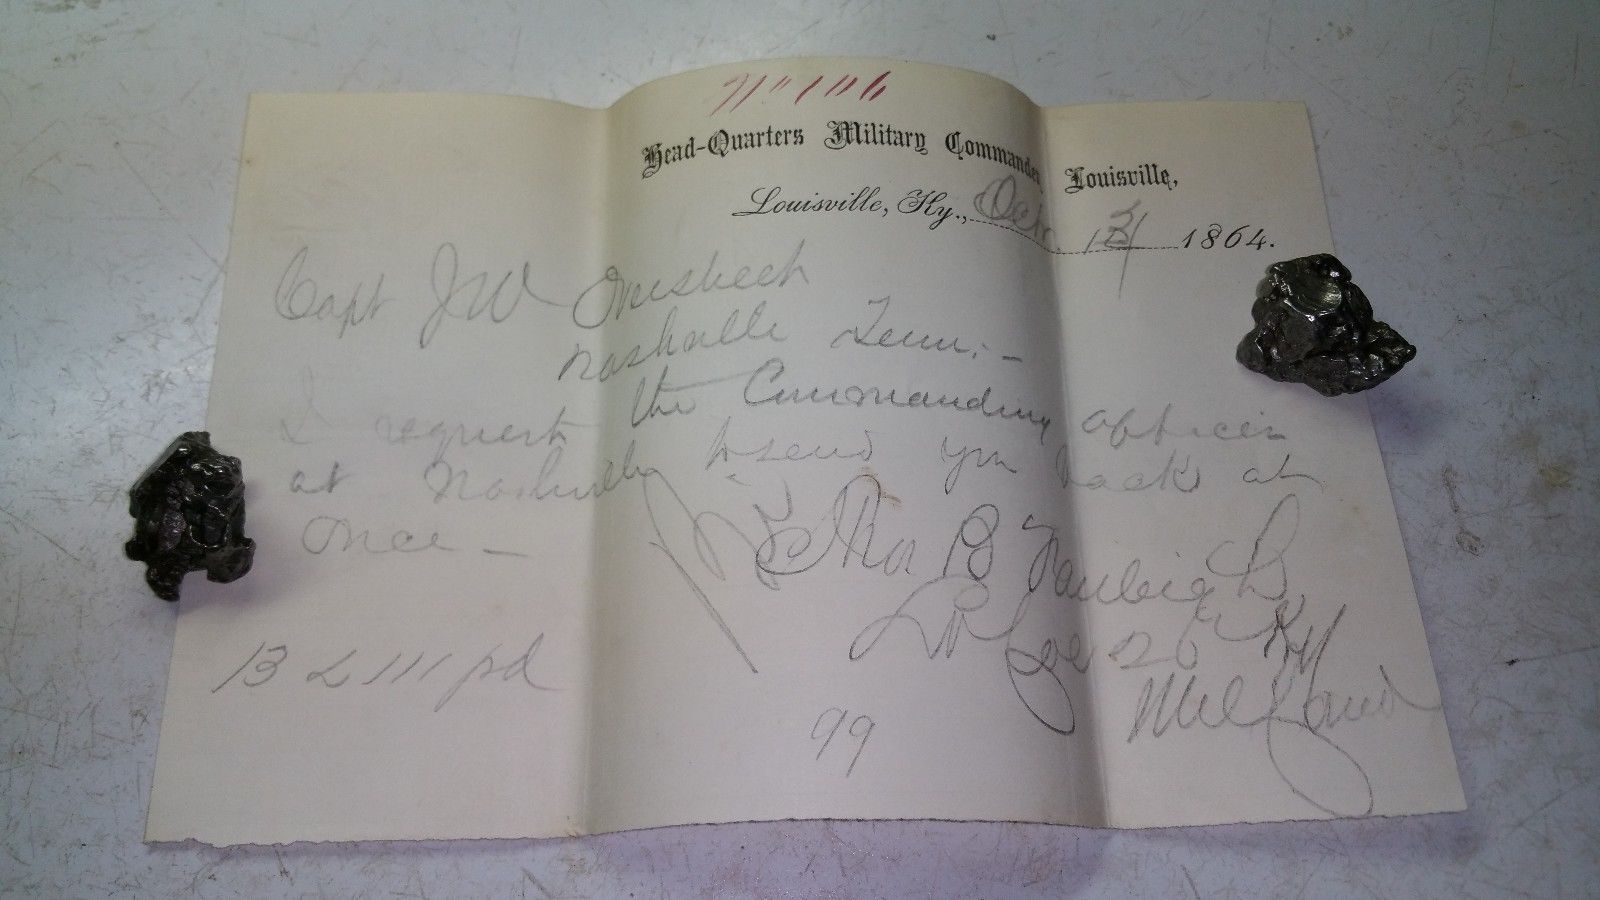 Head-Quarters Military Commander, Louisville,
Louisville, Ky., Oct. 1864.
Capt J W Overbeck
Nashville Tenn. -
I request the Commanding officer
at Nashville to send you back at
once -
Thos B Fairleigh
Lt Col 26 Ky
Mil Comd
13 L 111 pd
99